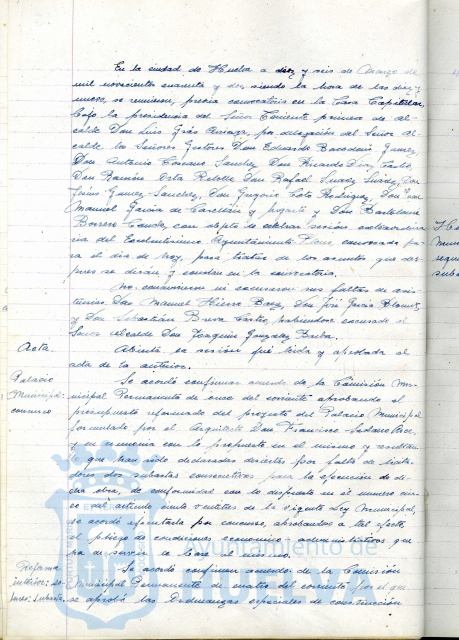 En la ciudad de Huelva a diez y seis de Marzo de
mil novecientos cuarenta y dos, siendo la hora de las diez y
nueve, se reunieron, previa convocatoria en la Casa Capitular,
bajo la presidencia del Señor Teniente primero de Al-
calde Don Luis Grás Arriaga, por delegación del Señor Al-
calde los Señores Gestores Don Eduardo Gomez,
Don Antonio Sanchez Don Ricardo
Don Ramón Orta Don Rafael Suarez Don
Jesús Gomez Sanchez, Don Gregorio Coto Rodriguez, Don Juan
Manuel García de y Don Bartolomé
Borrero con objeto de celebrar sesión extraordina-
ria del Excelentísimo Ayuntamiento Pleno, convocada pa-
ra el día de hoy, para tratar de los asuntos que des-
pues se dirán y constan en la convocatoria.
No concurrieron ni excusaron sus faltas de asis-
tencias Don Manuel Hierro Don José García
y Don Sebastián Castro, habiéndose excusado el
Señor Alcalde Don Joaquín Gonzalez Barba.
Acta. Abierta la sesión fué leida y aprobada el
acta de la anterior.
Palacio Se acordó confirmar acuerdo de la Comisión Mu-
Municipal: nicipal Permanente de once del corriente aprobando el
concurso presupuesto reformado del proyecto del Palacio Municipal
formulado por el Arquitecto Don Francisco Sedano Arce,
y en armonía con lo propuesto en el mismo y resultan-
do que han sido declaradas desiertas por falta de licita-
dores dos subastas consecutivas para la ejecución de di-
cha obra, de conformidad con lo dispuesto en el número cin-
co del artículo ciento veintitres de la vigente Ley Municipal,
se acordó efectuarla por concurso, aprobandose a tal efecto
el pliego de condiciones economico-administrativas que
ha de servir de base al mismo.
Reforma Se acordó confirmar acuerdo de la Comisión
interior: Municipal Permanente de cuatro del corriente por el que
Subasta. se aprobó las Ordenanzas especiales de construcción
Ayuntamiento de
HUELVA